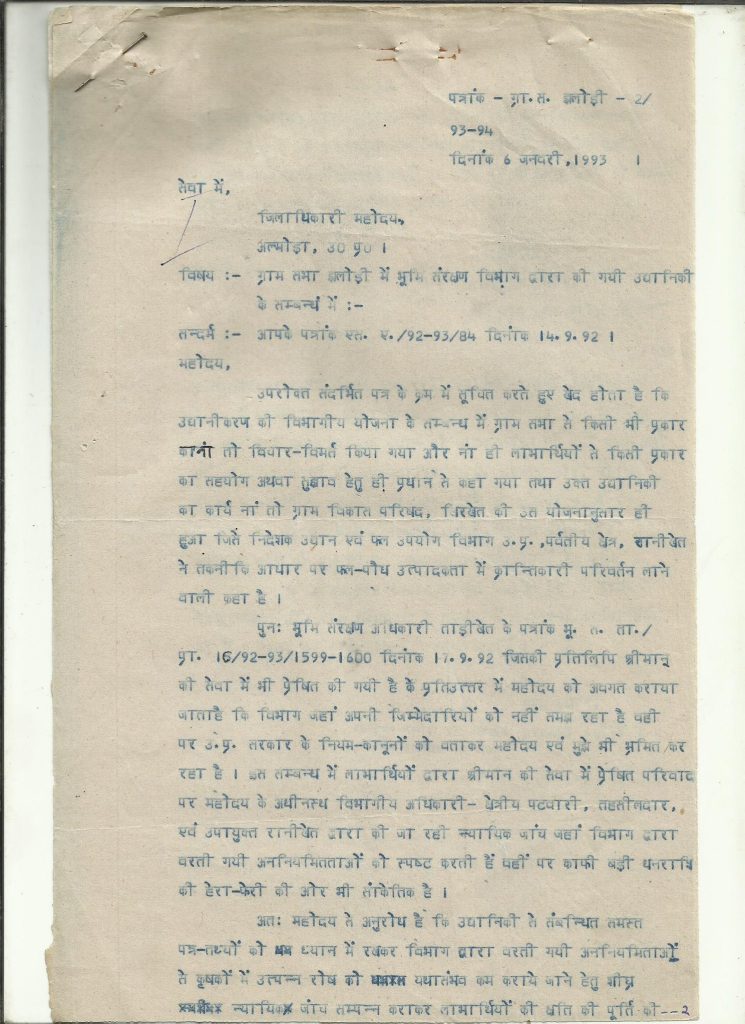 पत्रांक - ग्रा.स. झलोड़ी - 2/
93-94
दिनांक 6 जनवरी,1993 ।
सेवा में,
जिलाधिकारी महोदय,
अल्मोड़ा, उ0 प्र0 ।
विषय :- ग्राम सभा झलोड़ी में भूमि संरक्षण विभाग द्वारा की गयी उद्यानिकी
के सम्बन्ध में :-
सन्दर्भ :- आपके पत्रांक एस. ए./92-93/84 दिनांक 14.9.92 ।
महोदय,
उपरोक्त संदर्भित पत्र के क्रम में सूचित करते हुए खेद होता है कि
उद्यानीकरण की विभागीय योजना के सम्बन्ध में ग्राम सभा से किसी भी प्रकार
का नां तो विचार-विमर्श किया गया और नां ही लाभार्थियों से किसी प्रकार
का सहयोग अथवा सुझाव हेतु ही प्रधान से कहा गया तथा उक्त उद्यानिकी
का कार्य नां तो ग्राम विकास परिषद, विरखेत की उस योजनानुसार ही
हुआ जिसे निदेशक उद्यान एवं फल उपयोग विभाग उ.प्र.,पर्वतीय क्षेत्र, रानीखेत
ने तकनीकि आधार पर फल-पौध उत्पादकता में क्रान्तिकारी परिवर्तन लाने
वाली कहा है ।
पुनः भूमि संरक्षण अधिकारी ताड़ीखेत के पत्रांक भू. स. ता./
प्रा. 16/92-93/1599-1600 दिनांक 17.9.92 जिसकी प्रतिलिपि श्रीमान्
की सेवा में भी प्रेषित की गयी है के प्रतिउत्तर में महोदय को अवगत कराया
जाताहै कि विभाग जहां अपनी जिम्मेदारियों को नहीं समझ रहा है वही
पर उ.प्र. सरकार के नियम-कानूनों को बताकर महोदय एवं मुझे भी भ्रमित कर
रहा है । इस सम्बन्ध में लाभार्थियों द्वारा श्रीमान की सेवा में प्रेषित परिवाद
पर महोदय के अधीनस्थ विभागीय अधिकारी- क्षेत्रीय पटवारी, तहसीलदार,
एवं उपायुक्त रानीखेत द्वारा की जा रही न्यायिक जांच जहां विभाग द्वारा
बरती गयी अननियमितताओं को स्पष्ट करती हैं वहीं पर काफी बड़ी धनराशि
की हेरा-फेरी की ओर भी सांकेतिक है ।
अतः महोदय से अनुरोध है कि उद्यानिकी से संबन्धित समस्त
पत्र-तथ्यों को ध्यान में रखकर विभाग द्वारा बरती गयी अननियमिताओं
से कृषकों में उत्पन्न रोष को यथासंभव कम कराये जाने हेतु शीघ्र
न्यायिक जांच सम्पन्न कराकर लाभार्थियों की क्षति की पूर्ति की--2